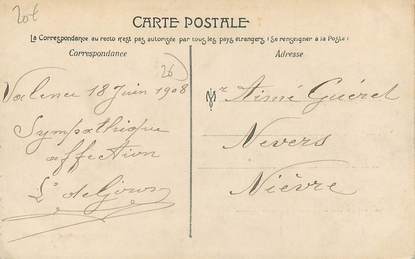 20€
CARTE POSTALE
La Correspondance au recto n'est pas autorisée par tous les pays étrangers (Se renseigner à la Poste)
Correspondance
Adresse
26
Valence 18 Juin 1908
Sympathique
affection
Mr Aimé Guéret
Nevers
Nièvre